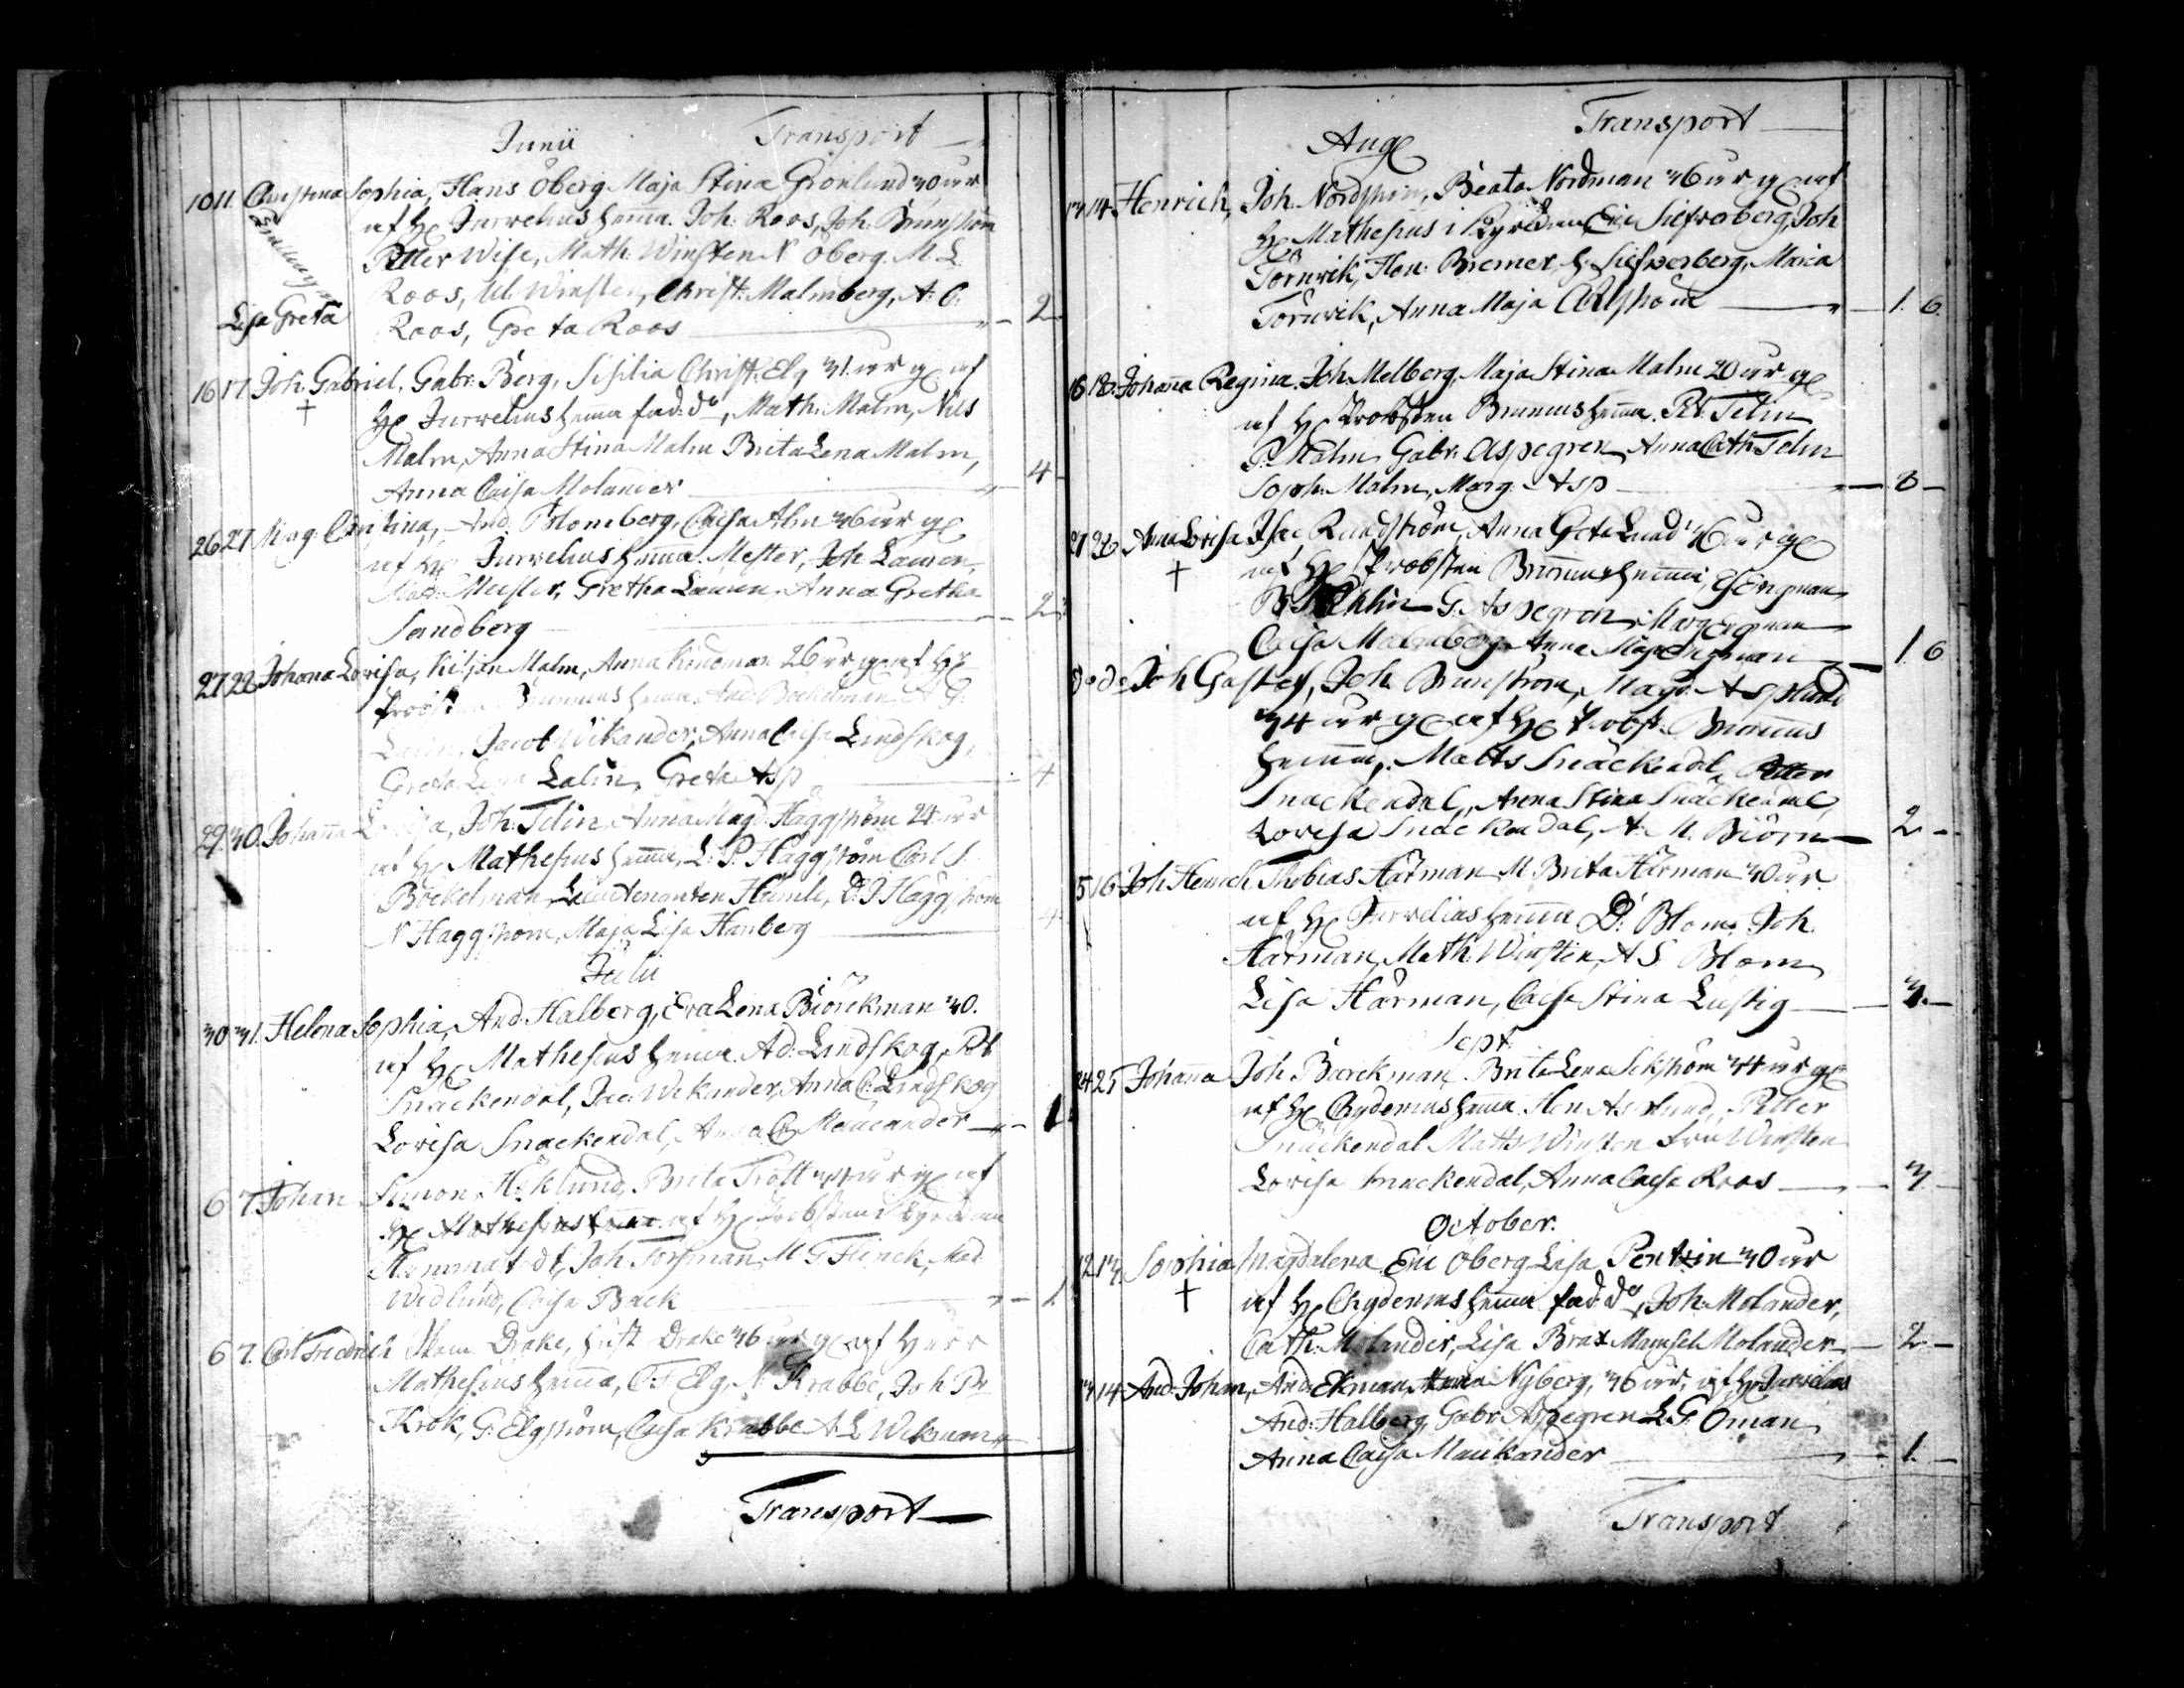 Junii Transport
10 11. Christina Sophia, Hans Öberg Maja Stina Grönlund 30 år
af H. Jurvelius hemma. Joh. Roos, Joh. Brunström
Petter Wise, Math. Winsten N Öberg. M. L.
Roos, Ul. Winsten, Christ. Malmberg, A. C.
Lisa Greta Roos, Greta Roos 2
16 17 Joh. Gabriel, Gabr. Berg, Sisilia Christ. Elg 31 år g af
† H. Jurvelius hemma fad. do, Math. Malm, Nils
Malm, Anna Stina Malm Brita Lena Malm,
Anna Caisa Molander 4
26 27 Marg. Christina, And. Blomberg, Caisa Alm 36 år g
af H. Jurvelius hemma. Mester, Joh Lauren,
Mad. Mester, Gretha Lauren, Anna Gretha
Sandberg 2
27 22 Johana Lovisa, Kiljan Malm, Anna Kindman 26 år g af H.
Probsten Brunnius hemma. And. Böckelman A G.
Jacob Wikander, Anna Caisa Lindskog,
Greta Lena Lalin, Greta Asp 4
29 30. Johanna Lovisa, Joh. Telin, Anna Magd. Häggström 24 år
af H. Mathesius hemma, L. P. Häggström Carl J.
Böckelman, Lieutenanten Hemle, D. J Häggström
N Häggström, Maja Lisa Hanberg 4
Julii
30 31. Helena Sophia, And. Halberg, Eva Lena Biörckman 30.
af H. Mathesius hemma. Ad. Lindskog, Pet
Snäckendal, Jac. Wikander, Anna C. Lindskog
Lovisa Snackendal, Anna C. Maucander 1.
6 7. Johan Simon Höklund, Brita Trott år g af
H. Mathesius hemma af H. Probsten i Kyrckan
Hammastedt, Joh Forsman, M G Flinck, Mad
Wedlund, Caisa Back
6 7. Carl Fredrich Drake, Drake 36 år g af Herr
Mathesius hemma, C F Elg, N. Krabbe, Joh Pr
Krok, G. Elgström, Caisa Krabbe A. L. Wikman
Transport
Aug Transport
13 14 Henrich, Joh. Nordström, Beata Nordman 36 år g af
H. Mathesius i Kyrckan, Eric Siefverberg, Joh
Törnvik, Han. Bremer, H. Siefverberg, Maria
Törnvik, Anna Maja Carlström 1. 6.
16 18. Johanna Regina. Joh. Melberg, Maja Stina Malm 20 år g
af H. Probsten Brunnius hemma. Pet. Telin
P. Malm Gabr. Aspegren, Anna Cath. Telin
Soph. Malm, Marg. Asp 8
21 22 Anna Lovisa Isac Rundström, Anna Greta Lund 36 år g
† af H. Probsten Brunnius hemma, G Engman,
G. Aspegren, Marg. Engman
Caisa Malmberg Anna Maja Engman 1 6
do do Joh Gustaf, Joh. Brunström, Magd. Asplund
34 år g af H. Probst. Brunnius
hemma, Matts Snäckendal, Petter
Snäckendal, Anna Stina Snäckendal
Lovisa Snäckendal, A. M. Biörn 2
5 16 Joh Henrich Thobias Härman M Brita Härman 30 år.
af H. Jurvelius hemma D. Blom, Joh.
Härman, Math. Winsten, A S. Blom
Lisa Härman, Caisa Stina Lustig 3.
Sept.
24 25 Johanna Joh. Barckman, Brita Lena Sikström 34 år g
af H. Chydenius hemma. Hen Asplund, Petter
Snäckendal Matts Winsten Fru Winsten
Lovisa Snackendal, Anna Caisa Roos 3
October.
12 13. Sophia Magdalena Eric Öberg Lisa Pentzin 30 år
† af H. Chydenius hemma fad. do, Joh. Molander,
Cath. Molander, Lisa Brax Mamsel Molander 2
13 14 And. Johan, And. Ekman, Anna Nyberg, 36 år, af H. Jurvelius
And. Halberg, Gabr Aspegren L. G. Öman,
Anna Caisa Maukander 1.
Transport